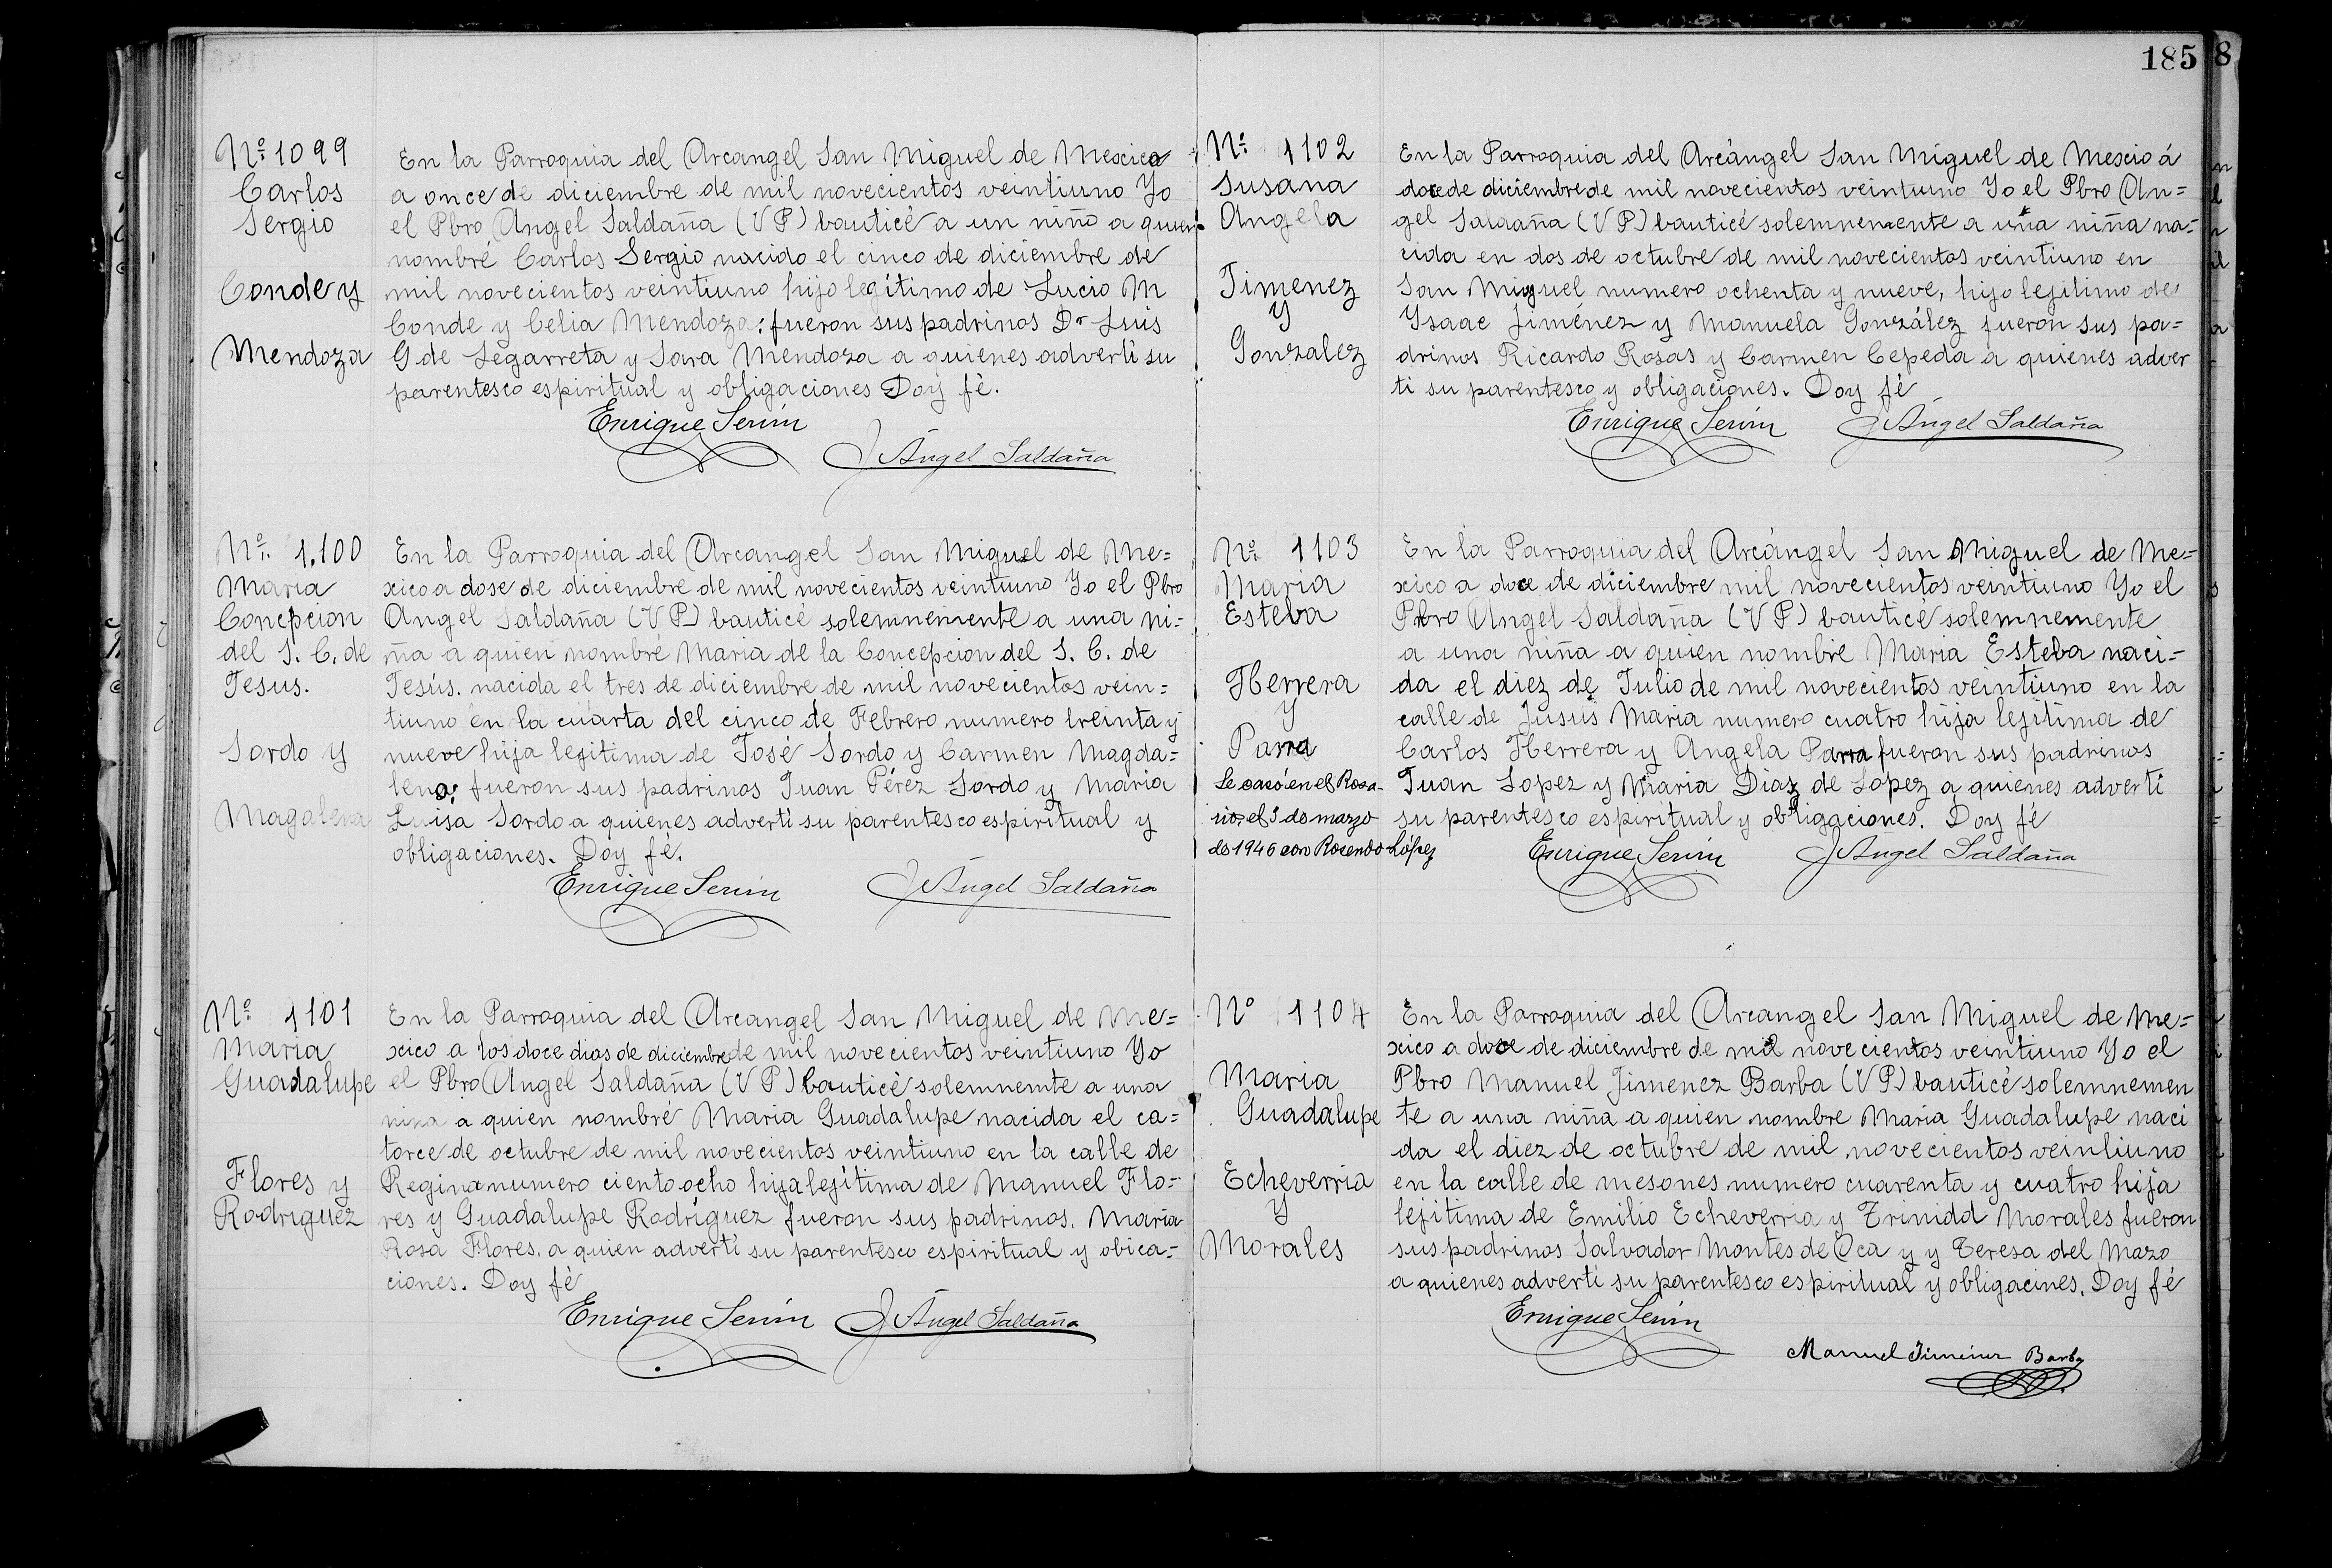 185
8
Nº 1099
Carlos
Sergio
Conde y
Mendoza
En la Parroquia del Arcangel San Miguel de Mescico
a once de diciembre de mil novecientos veintiuno Yo
el Pbro Angel Saldaña (V P) bauticé a un niño a quien
nombré Carlos Sergio nacido el cinco de diciembre de
mil novecientos veintiuno hijo legítimo de Lucio M
Conde y Celia Mendoza: fueron sus padrinos Dr Luis
G de Segarreta y Sara Mendoza a quienes adverti su
parentesco espiritual y obligaciones Doy fé.
Enrique Servín
J Ángel Saldaña
Nº. 1,100
Maria
Concepcion
del S. C. de
Jesus.
Sordo y
Magalena
En la Parroquia del Arcangel San Miguel de Me=
xico a dose de diciembre de mil novecientos veintiuno Yo el Pbro
Angel Saldaña (V P) bauticé solemnemente a una ni=
ña a quien nombré Maria de la Concepcion del S. C. de
Jesús. nacida el tres de diciembre de mil novecientos vein=
tiuno en la cuarta del cinco de Febrero numero treinta y
nueve hija legitima de José Sordo y Carmen Magda=
lena; fueron sus padrinos Juan Pérez Sordo y Maria
Luisa Sordo a quienes adverti su parentesco espiritual y
obligaciones. Doy fé.
Enrique Servín
J Ángel Saldaña
Nº 1101
Maria
Guadalupe
Flores y
Rodriguez
En la Parroquia del Arcangel San Miguel de Me=
xico a los doce dias de diciembre de mil novecientos veintiuno Yo
el Pbro Angel Saldaña (V P) bauticé solemnemte a una
nina a quien nombré Maria Guadalupe nacida el ca=
torce de octubre de mil novecientos veintiuno en la calle de
Regina numero ciento ocho hija lejítima de Manuel Flo=
res y Guadalupe Rodríguez fueron sus padrinos. Maria
Rosa Flores. a quien adverti su parentesco espiritual y obica=
ciones. Doy fé
Enrique Servín
J Ángel Saldaña
Nº 1102
Susana
Angela
Jimenez
y
Gonzalez
En la Parroquia del Arcángel San Miguel de Mescio á
doce de diciembre de mil novecientos veintiuno Yo el Pbro An=
gel Saldaña (V P) bauticé solemnemente a una niña na=
cida en dos de octubre de mil novecientos veintiuno en
San Miguel numero ochenta y nueve, hijo lejitimo de
Ysaac Jiménez y Manuela González fueron sus pa=
drinos Ricardo Rosas y Carmen Cepeda a quienes adver
ti su parentesco y obligaciones. Doy fé
Enrique Servín
J Ángel Saldaña
Nº 1103
Maria
Esteba
Herrera
y
Parra
Se casó en el Rosa-
rio, el 3 de marzo
de 1946 con Rosendo López
En la Parroquia del Arcángel San Miguel de Me=
xico a doce de diciembre mil novecientos veintiuno Yo el
Pbro Angel Saldaña (V P) bauticé solemnemente
a una niña a quien nombre Maria Esteba naci=
da el diez de Julio de mil novecientos veintiuno en la
calle de Jusus Maria numero cuatro hija lejitima de
Carlos Herrera y Angela Parra fueron sus padrinos
Juan Lopez y Maria Diaz de Lopez a quienes adverti
su parentesco espiritual y obligaciones. Doy fé
Enrique Servín
J Ángel Saldaña
Nº 1104
Maria
Guadalupe
Echeverria
y
Morales
En la Parroquia del Arcangel San Miguel de Me=
xico a doce de diciembre de mil novecientos veintiuno Yo el
Pbro Manuel Jimenez Barba (V P) bauticé solemnemen
te a una niña a quien nombre Maria Guadalupe naci
da el diez de octubre de mil novecientos veintiuno
en la calle de mesones numero cuarenta y cuatro hija
lejitima de Emilio Echeverria y Trinidd Morales fueron
sus padrinos Salvador Montes de Oca y y Teresa del Mazo
a quienes adverti su parentesco espiritual y obligacines. Doy fé
Enrique Servín
Manuel Jiménez Barba